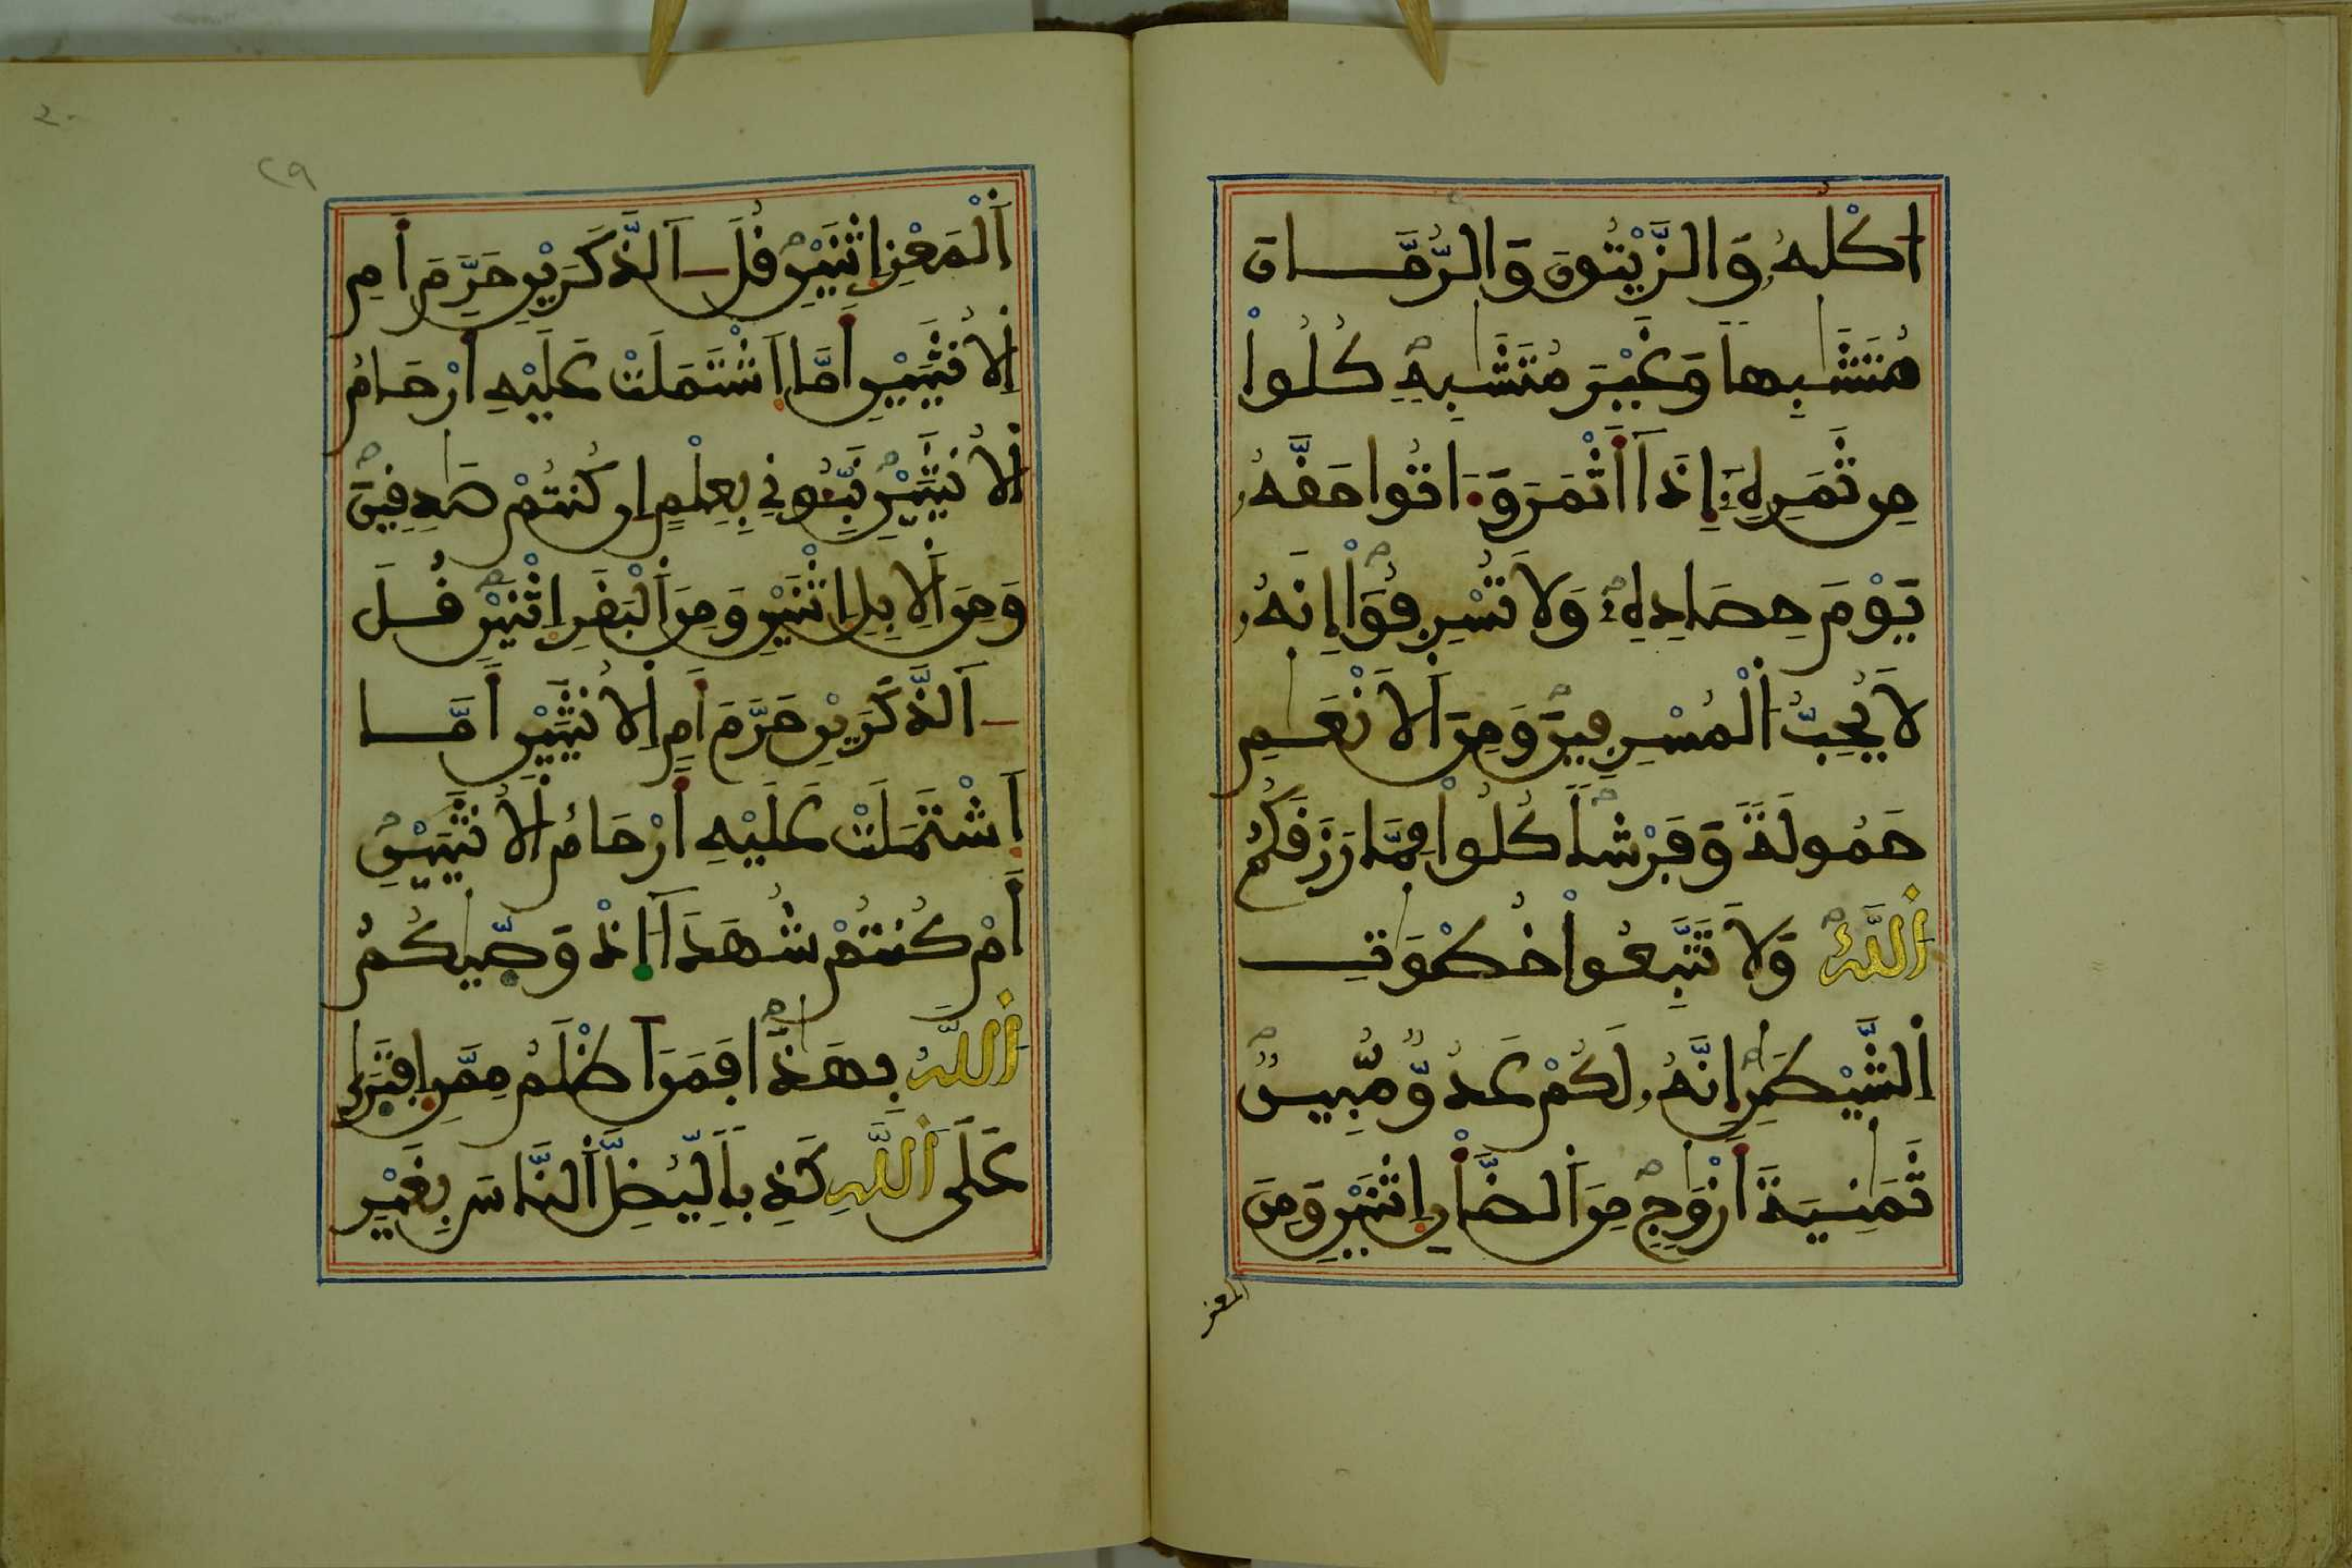 اُكْلُهُۥ وَالزَّيْتُونَ وَالرُّمَّانَ
مُتَشَٰبِهاً وَغَيْرَ مُتَشَٰبِهٍ كُلُواْ
مِن ثَمَرِهِۦٓ إِذَآ أَثْمَرَ وَءَاتُواْ حَقَّهُۥ
يَوْمَ حِصَادِهِۦ وَلَا تُسْرِفُوٓاْ إِنَّهُۥ
لَا يُحِبُّ اَلْمُسْرِفِينَ وَمِنَ اَلَانْعَٰمِ
حَمُولَةً وَفَرْشاً كُلُواْ مِمَّا رَزَقَكُمُ
اُللَّهُ وَلَا تَتَّبِعُواْ خُطْوَٰتِ
اِلشَّيْطَٰنِ إِنَّهُۥ لَكُمْ عَدُوٌّ مُّبِينٌ
ثَمَٰنِيَةَ أَزْوَٰجٍ مِّنَ اَلضَّأْنِ اِثْنَيْنِ وَمِنَ
المعز
٢٩
اَلْمَعْزِ اِثْنَيْنِ قُلَ ـ آلذَّكَرَيْنِ حَرَّمَ أَمِ
اِلُانثَيَيْنِ أَمَّا اَشْتَمَلَتْ عَلَيْهِ أَرْحَامُ
اُلُانثَيَيْنِ نَبِّـُٔونِي بِعِلْمٍ إِن كُنتُمْ صَٰدِقِينَ
وَمِنَ اَلِابِلِ اِثْنَيْنِ وَمِنَ اَلْبَقَرِ اِثْنَيْنِ قُلَ
ـ آلذَّكَرَيْنِ حَرَّمَ أَمِ اِلُانثَيَيْنِ أَمَّا
اَشْتَمَلَتْ عَلَيْهِ أَرْحَامُ اُلُانثَيَيْنِ
أَمْ كُنتُمْ شُهَدَآءَ اذْ وَصَّيٰكُمُ
اُللَّهُ بِهَٰذَا فَمَنَ اَظْلَمُ مِمَّنِ اِفْتَرَىٰ
عَلَى اَللَّهِ كَذِباً لِّيُضِلَّ اَلنَّاسَ بِغَيْرِ